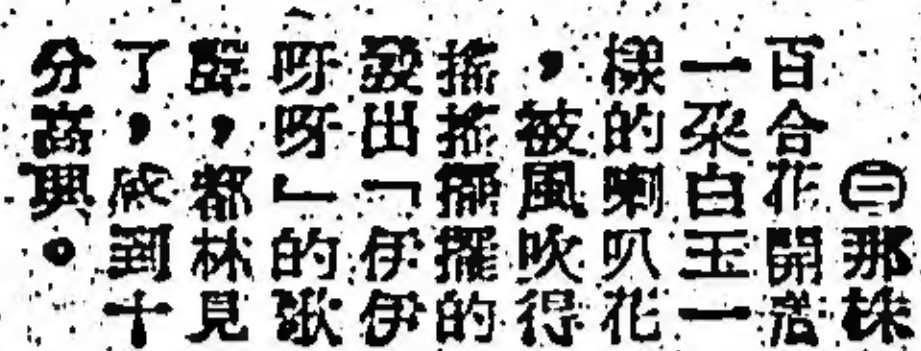 ㊂那株
百合花開着
一朵白玉一
樣的喇叭花
，被風吹得
搖搖擺擺的
發出「伊伊
呀呀」的歌
聲，都林見
了，感到十
分高興。